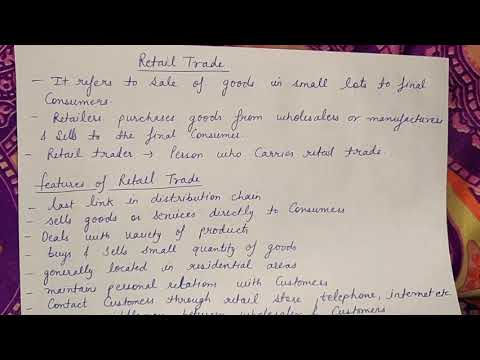 Retail Trade
- It refers to sale of goods in small lots to final
Consumers.
- Retailers purchases goods from wholesalers or manufactures
& Sells to the final Consumer.
- Retail trader → Person who Carries retail trade.
features of Retail Trade
- last link in distribution chain
- Sells goods or Services directly to Consumers
- Deals with variety of products
- buys & Sells small quantity of goods
- generally located in residential areas
- maintain personal relations with Customers
- Contact Customers through retail store, telephone, internet etc
between wholesaler & Customers